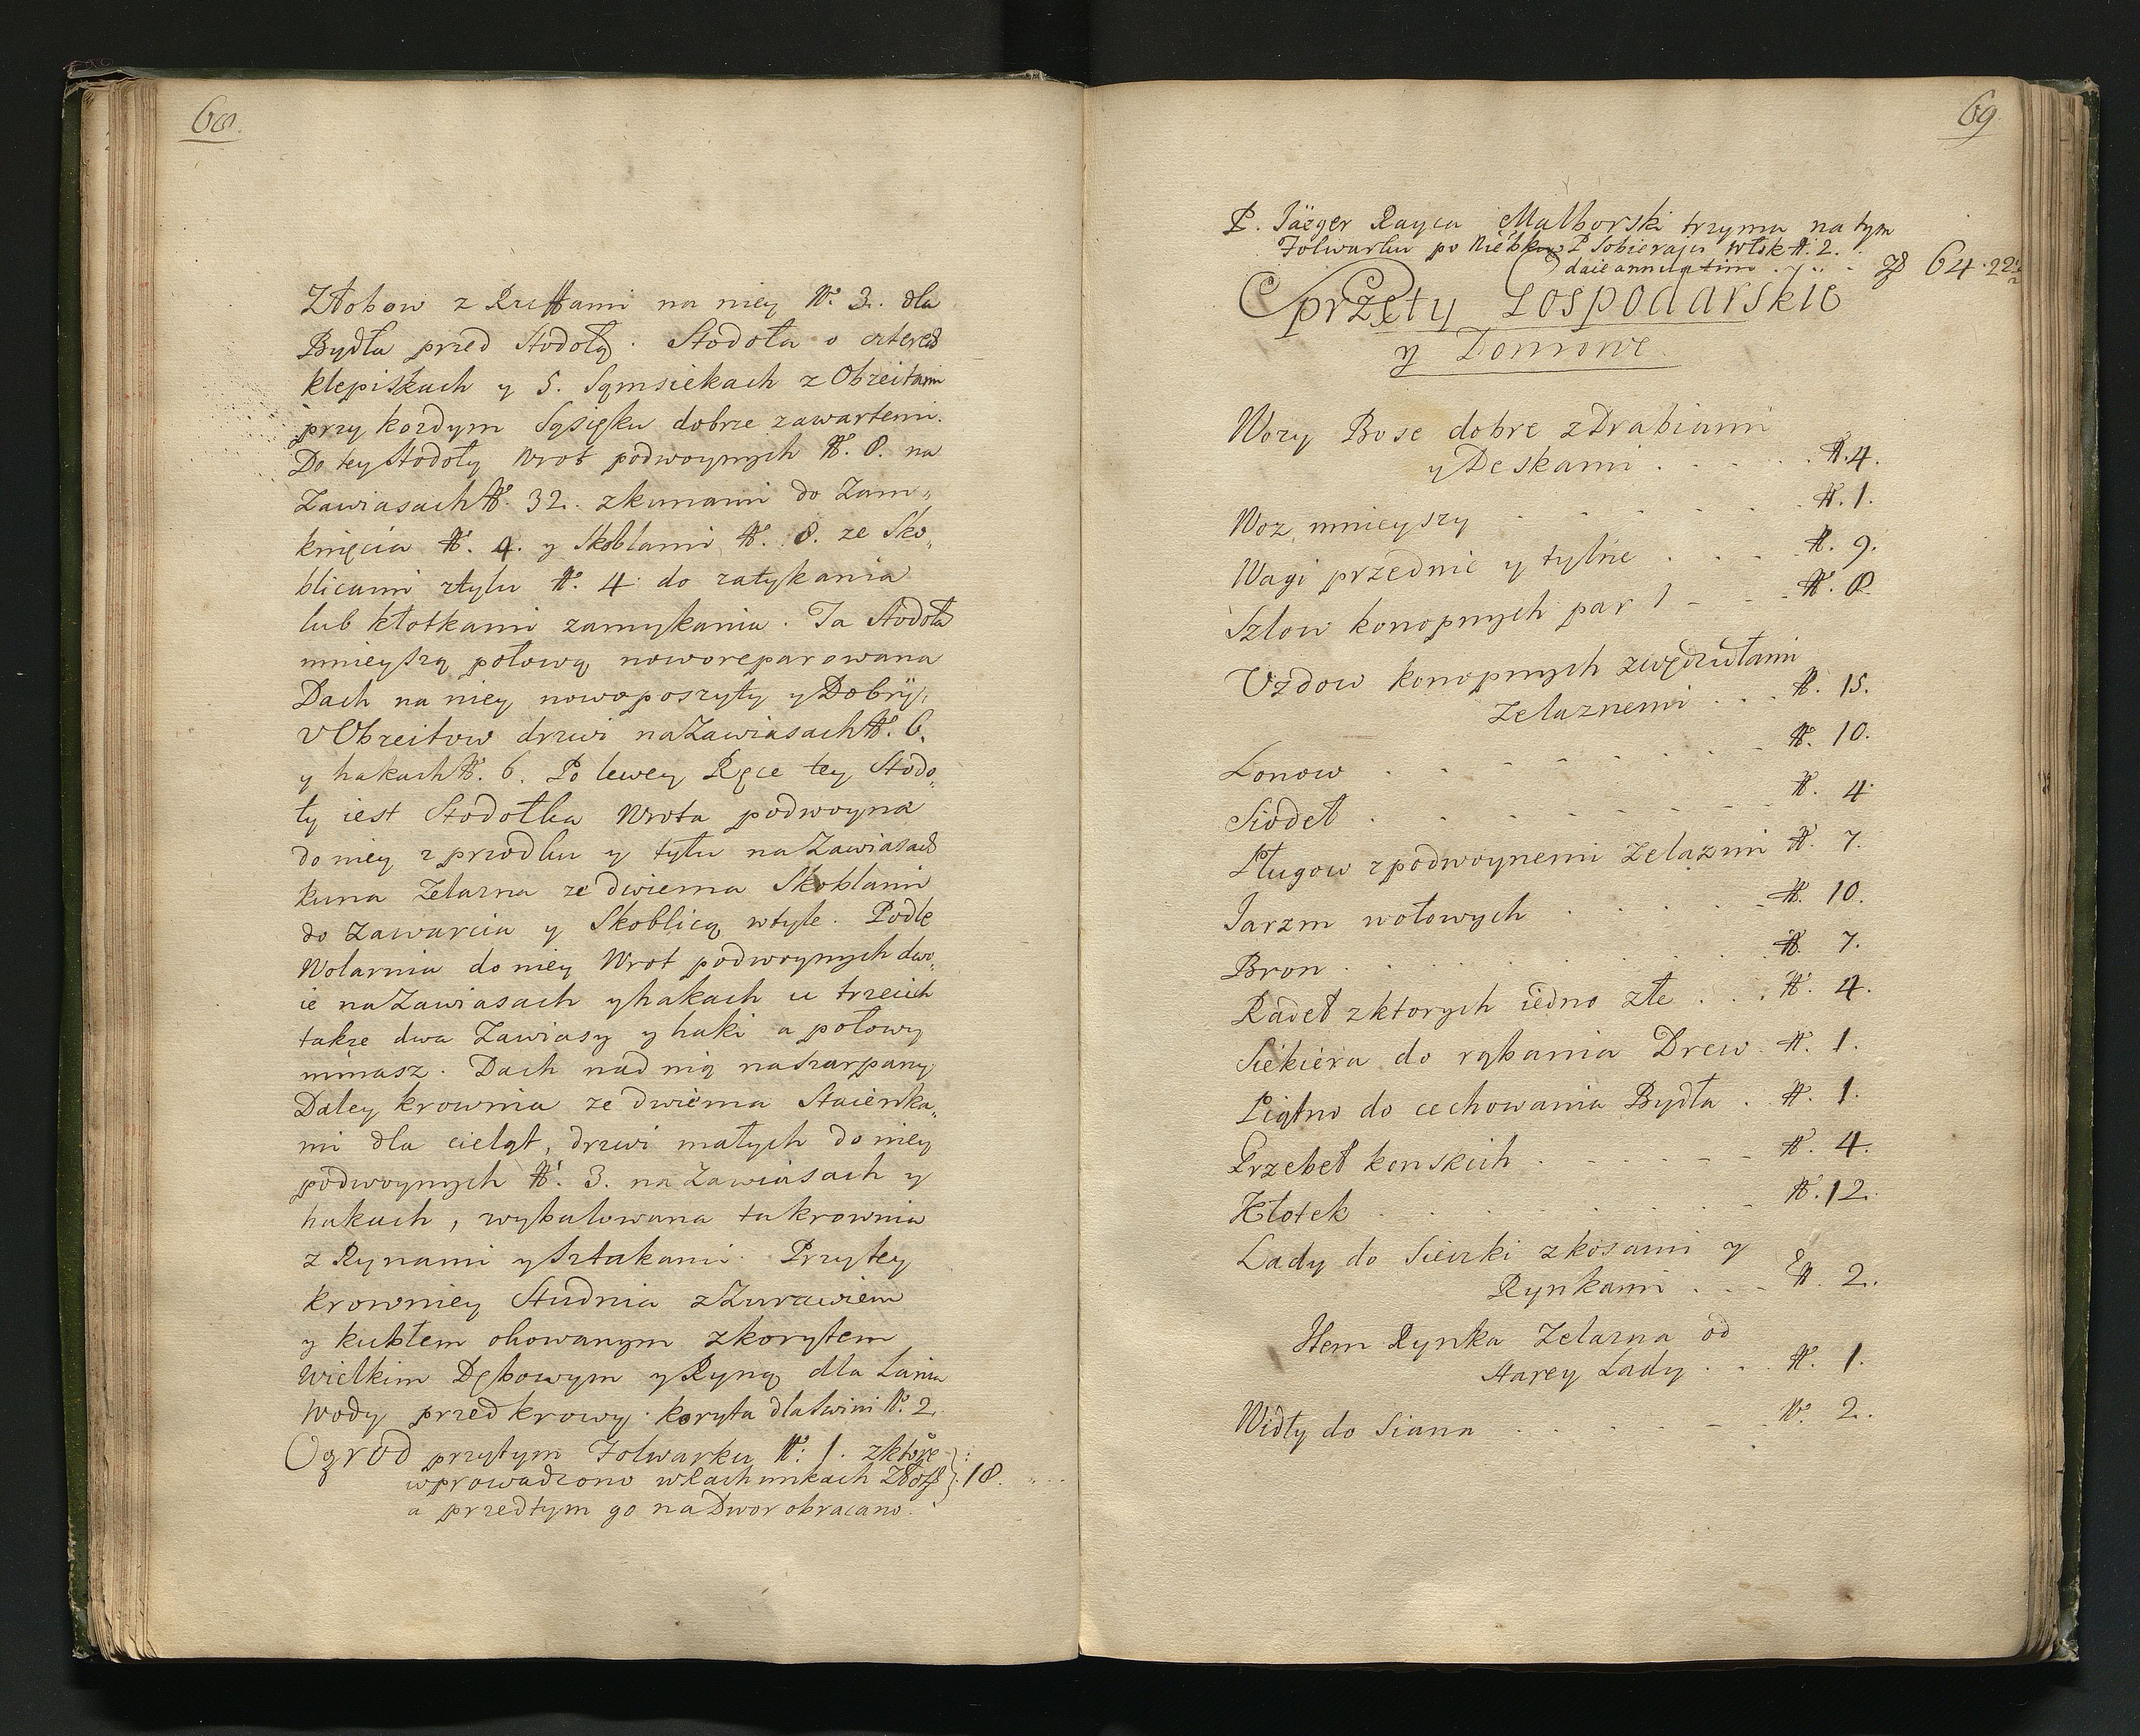 68.
Złobow z Ruffami na niey N. 3. dla
Bydła przed Stodołą. Stodoła o czterech
klepiskach y 5. Sąmsiekach z Obreitami
przy kozdym Sąsięku dobrze zawartemi.
Do tey Stodoły Wrot podwoynych N. 8. na
Zawiasach N. 32. zkunami do Zam„
knięcia N. 4. y Skoblami N. 8. ze Sko„
blicami ztyłu N. 4. do zatykania
lub kłotkami zamykania. Ta Stodoła
mnieyszą połową noworeparowana
Dach na niey nowoposzyty y Dobry,
v Obreitow drzwi na Zawiasach N. 6.
y hakach N. 6. Po lewey Ręce tey Stodo„
ły iest Stodołka Wrota podwoyna
do niey z przodku y tyłu na Zawiasach
kuna Zelazna ze dwiema Skoblami
do Zawarcia y Skoblicą wtyle. Podle
Wolarnia do niey Wrot podwoynych dwo„
ie na Zawiasach y hakach u trzecich
takze dwa Zawiasy y haki a połowy
nimasz. Dach nad nią naszarpany
Daley krownia ze dwiema Staienka„
mi dla cieląt, drzwi małych do niey
podwoynych N. 3. na Zawiasach y
hakach, wybalowana ta krownia
z Rynami y Sztakami. Przy tey
krowniey Studnia z Zurawiem
y kubłem okowanym zkorytem
wielkim Dębowym y Ryną dla Lania
wody przed krowy. koryta dla Swini N. 2.
Ogrod przytym Folwarku N. 1. zktore
wprowadzono w Rachunkach Zło zł } 18.
a przedtym go na Dwor obracano.
69
P. Jäeger Rayca Malborski trzyma na tym
Folwarku po Niebku P Sobieraju włok N. 2.
daie annuatim . . . zł 64.22½
Sprzęty Gospodarskie
y Domowe
Wozy Bose dobre z Drabiami
y Deskami . . . . . N. 4.
Woz mnieyszy . . . . . . N. 1.
Wagi przednie y tylne . . . . N. 9.
Szlow konopnych par 1 - - - N. 8.
Vzdow konopnych zwędzidłami
Zelaznemi . . . N. 15.
Lonow . . . . . . . . N. 10.
Siodeł . . . . . . . . N. 4.
Pługow zpodwoynemi Zelazmi N. 7.
Jarzm wołowych . . . . . N. 10.
Bron . . . . . . . . . N. 7.
Radeł zktorych iedno złe . . . N. 4.
Siekiera do rąbania Drew N. 1.
Piątno do cechowania Bydła . N. 1.
Przebeł konskich . . . . . N. 4.
Kłotek . . . . . . . . N. 12.
Lady do Sieczki zkosami y
Rynkami . . . N. 2.
Item Rynka Zelazna od
Starey Lady . . . N. 1.
Widły do Siana . . . . . N. 2.